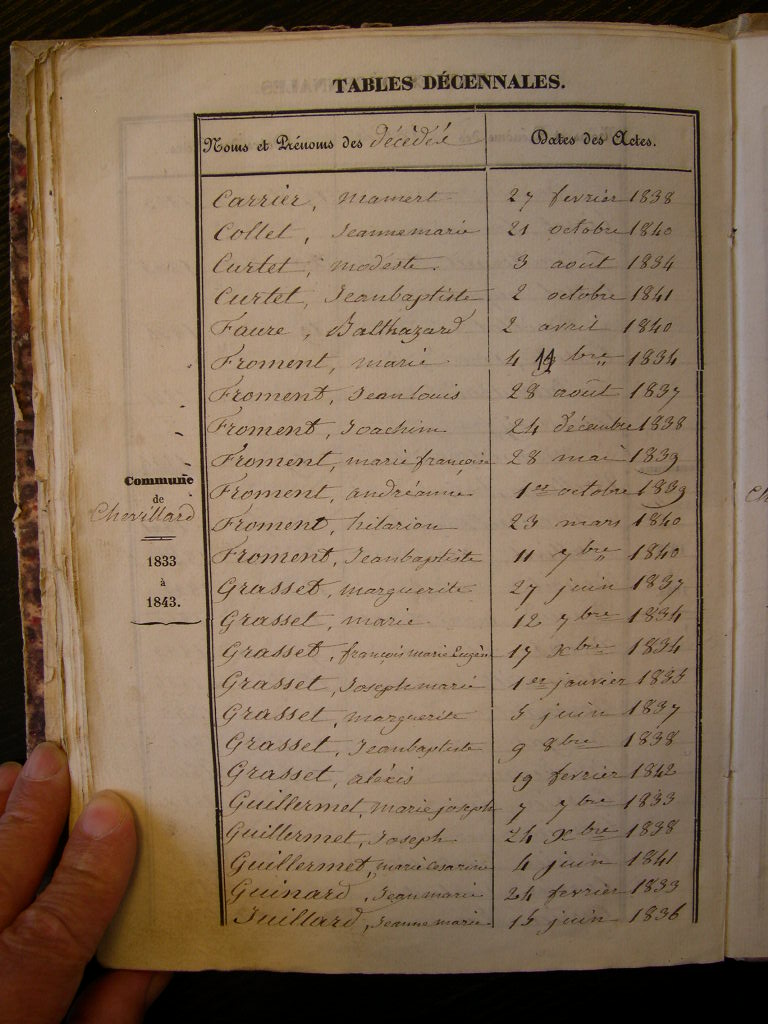 TABLES DÉCENNALES.
Noms et Prénoms des décédés Dates des Actes.
Carrier, Mamert 27 fevrier 1838
Collet, Jeanne marie 21 octobre 1840
Curtet, modeste. 3 août 1834
Curtet, Jeanbaptiste 2 octobre 1841
Faure, Balthazard 2 avril 1840
Froment, marie 4 11 bre 1834
Froment, Jean louis 28 août 1837
Froment, Joachim 24 décembre 1838
Froment, marie françoise 28 mai 1839
Froment, andréanne 1er octobre 1839
Froment, hilarion 23 mars 1840
Froment, Jeanbaptiste 11 7bre 1840
Grasset, marguerite 27 juin 1837
Grasset, marie 12 7bre 1834
Grasset, françois marie Eugèn 17 Xbre 1834
Grasset, Joseph marie 1er janvier 1835
Grasset, marguerite 5 juin 1837
Grasset, Jeanbaptiste 9 8bre 1838
Grasset, aléxis 19 fevrier 1842
Guillermet, marie joseph 7 7bre 1833
Guillermet, Joseph 24 Xbre 1838
Guillermet, marie Cesarine 4 juin 1841
Guinard, Jean marie 24 fevrier 1833
Juillard, Jeanne marie 15 juin 1836
Commune
de
Chevillard
1833
à
1843.